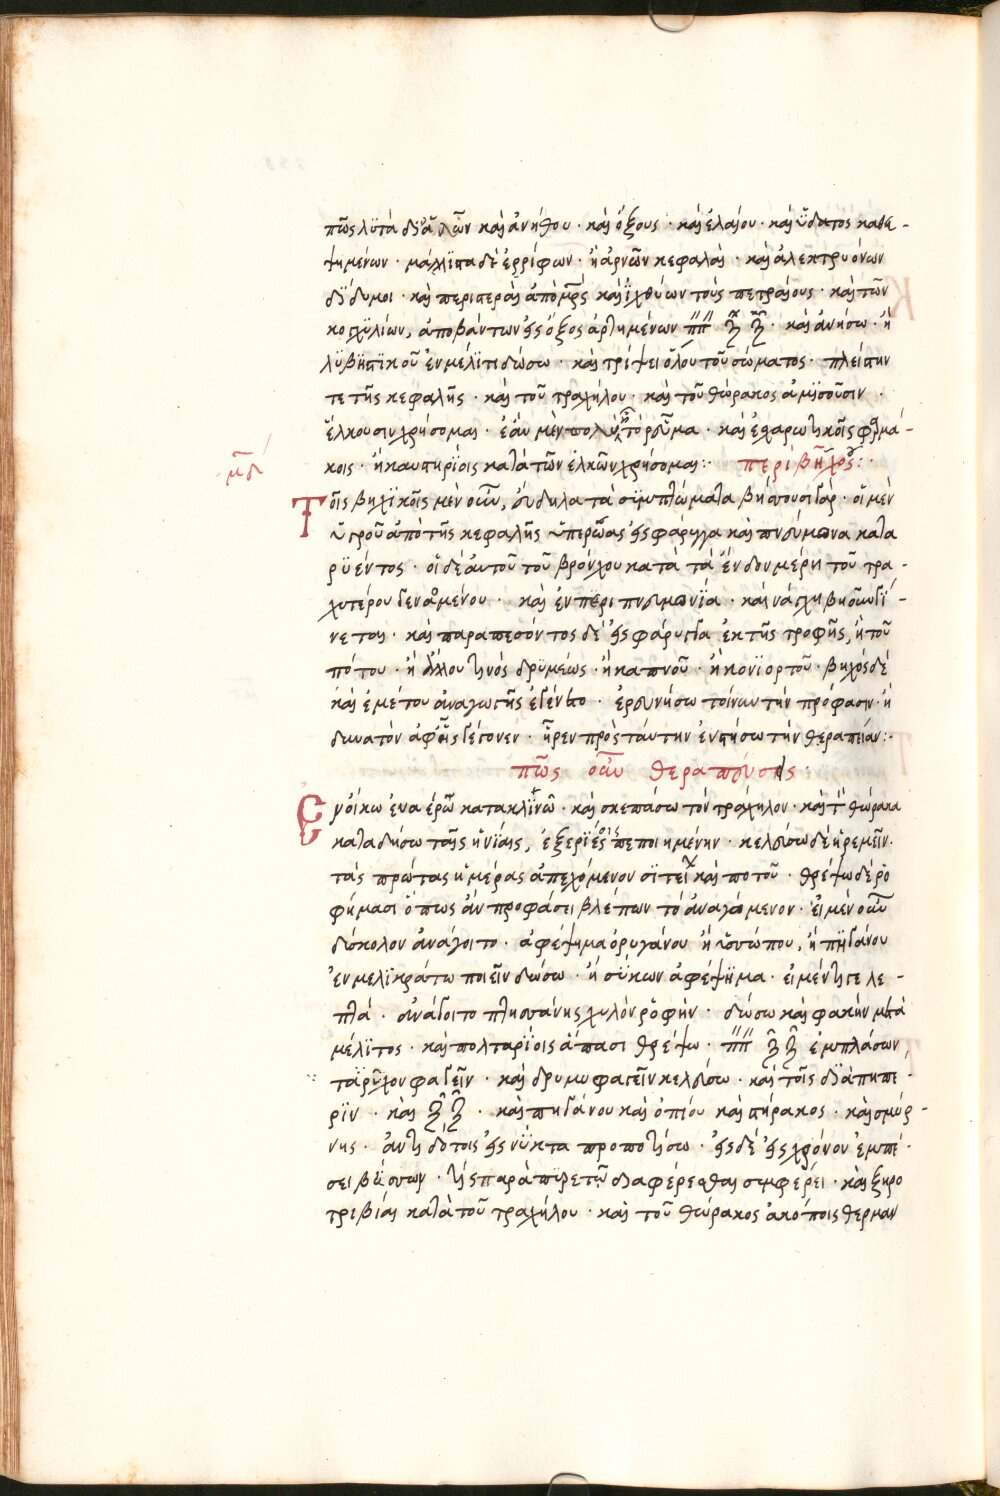 πῶς λϋτὰ δϊἁλῶν καὶ ἀνήθου · καὶ ὄξους · καὶ ἐλαίου · καὶ ὕδατος καθε-
ψημένων · μάλλϊστα δὲ ἐρρίφων · ἢ ἀρνῶν κεφαλαὶ · καὶ ἀλεκτρυόνων
δΐδυμοι · καὶ περιστεραὶ καὶ ἰχθύων τοὺς πετραίους · καὶ τῶν
κοχχϋλίων, ἀποβάντων εἰς ὄξος ἀρτημένων · καὶ ἀνήσω · ἢ
λϋβηστικοῦ ἐν μέλϊτι δώσω · καὶ τρίψει ὅλου τοῦ σώματος · πλείστην
τε τῆς κεφαλῆς · καὶ τοῦ τραχήλου · καὶ τοῦ θώρακος ἀμϋσοῦσιν ·
ἕλκουσι χρήσομαι · ἐὰν μὲν πολὺ τὸ ρεῦμα · καὶ ἐσχαρωτικοῖς φαρμά-
κοις · ἢ καυστηρΐοις κατὰ τῶν ἑλκῶν χρήσομαι :· περὶ βηχὸς :·
μδ
Τοῖς βηχϊκοῖς μὲν οὖν, εὔδηλα τὰ σϋμπτώματα βήσσουσι γὰρ · οἱ μὲν
ὑγροῦ ἀπὸ τῆς κεφαλῆς ὑπερώας εἰς φάρυγγα καὶ πνεύμονα κατα
ρϋέντος · οἱ δὲ αὐτοῦ τοῦ βρόγχου κατὰ τὰ ἔνδον μέρη τοῦ τρα-
χυτέρου γεναμένου · καὶ ἐν περιπνευμονΐα · καὶ
νεται · καὶ παραπεσόντος δὲ εἰς φάρυγγα ἐκ τῆς τροφῆς, ἢ τοῦ
πότου · ἢ ἄλλου τινὸς δρϋμέως · ἢ καπνοῦ · ἢ κονϊορτοῦ · βηχὸς δὲ
καὶ ἐμέτου ἀναγωγῆς ἐγένετο · ἐρευνήσω τοίνυν τὴν πρόφασιν · ἢ
δυνατὸν ἀφ' ἧς γέγονεν · πρὸς ταύτην ἐνστήσω τὴν θεραπείαν :·
πῶς οὖν θεραπεύσεις ·
Ἐν οἴκω ἕνα ἐρῶ κατακλϊνῶ · καὶ σκεπάσω τὸν τράχηλον · καὶ τὸν θώρακα
καταδήσω ταῖς ἡνΐαις, ἐξερΐες πεποιημένην · κελεύσω δὲ ἠρεμεῖν ·
τὰς πρώτας ἡμέρας ἀπεχόμενον σϊτεΐ καὶ ποτοῦ · θρέψω δὲ ῥο
φήμασι ὅπως ἂν προφάσει βλέπων τὸ ἀναγώμενον · εἰ μὲν οὖν
δύσκολον ἀνάγοιτο · ἀφέψημα ὀρυγάνου ἢ ὑσσώπου, ἢ πηγάνου
ἐν μελϊκράτω ποιεῖν δώσω · ἢ σύκων ἀφέψημα · εἰ μέντιγε λε-
πτὰ · ἀνάγοιτο πτησσάνης χυλὸν ῥοφὴν · δώσω καὶ φακὴν μετὰ
μέλϊτος · καὶ πολταρΐοις ἅπασι θρέψω · ἐμπλάσων,
τάρϊχον φαγεῖν · καὶ δρυμυφαγεῖν κελεύσω · καὶ τοῖς δϊὰ πηπε-
ρϊν · καὶ · καὶ πηγάνου καὶ ὀπίου καὶ στήρακος · καὶ σμύρ-
νης · ἀντιδότοις εἰς νύκτα προποτήσω · εἰς δὲ εἰς χρόνον ἐμπέ-
σει βΐσσων · τίς παρὰ πϋρετῶ διαφέρεσθαι συμφέρει · καὶ ξηρο
τριβίαι κατὰ τοῦ τραχήλου · καὶ τοῦ θώρακος ἀκόποις θερμαν